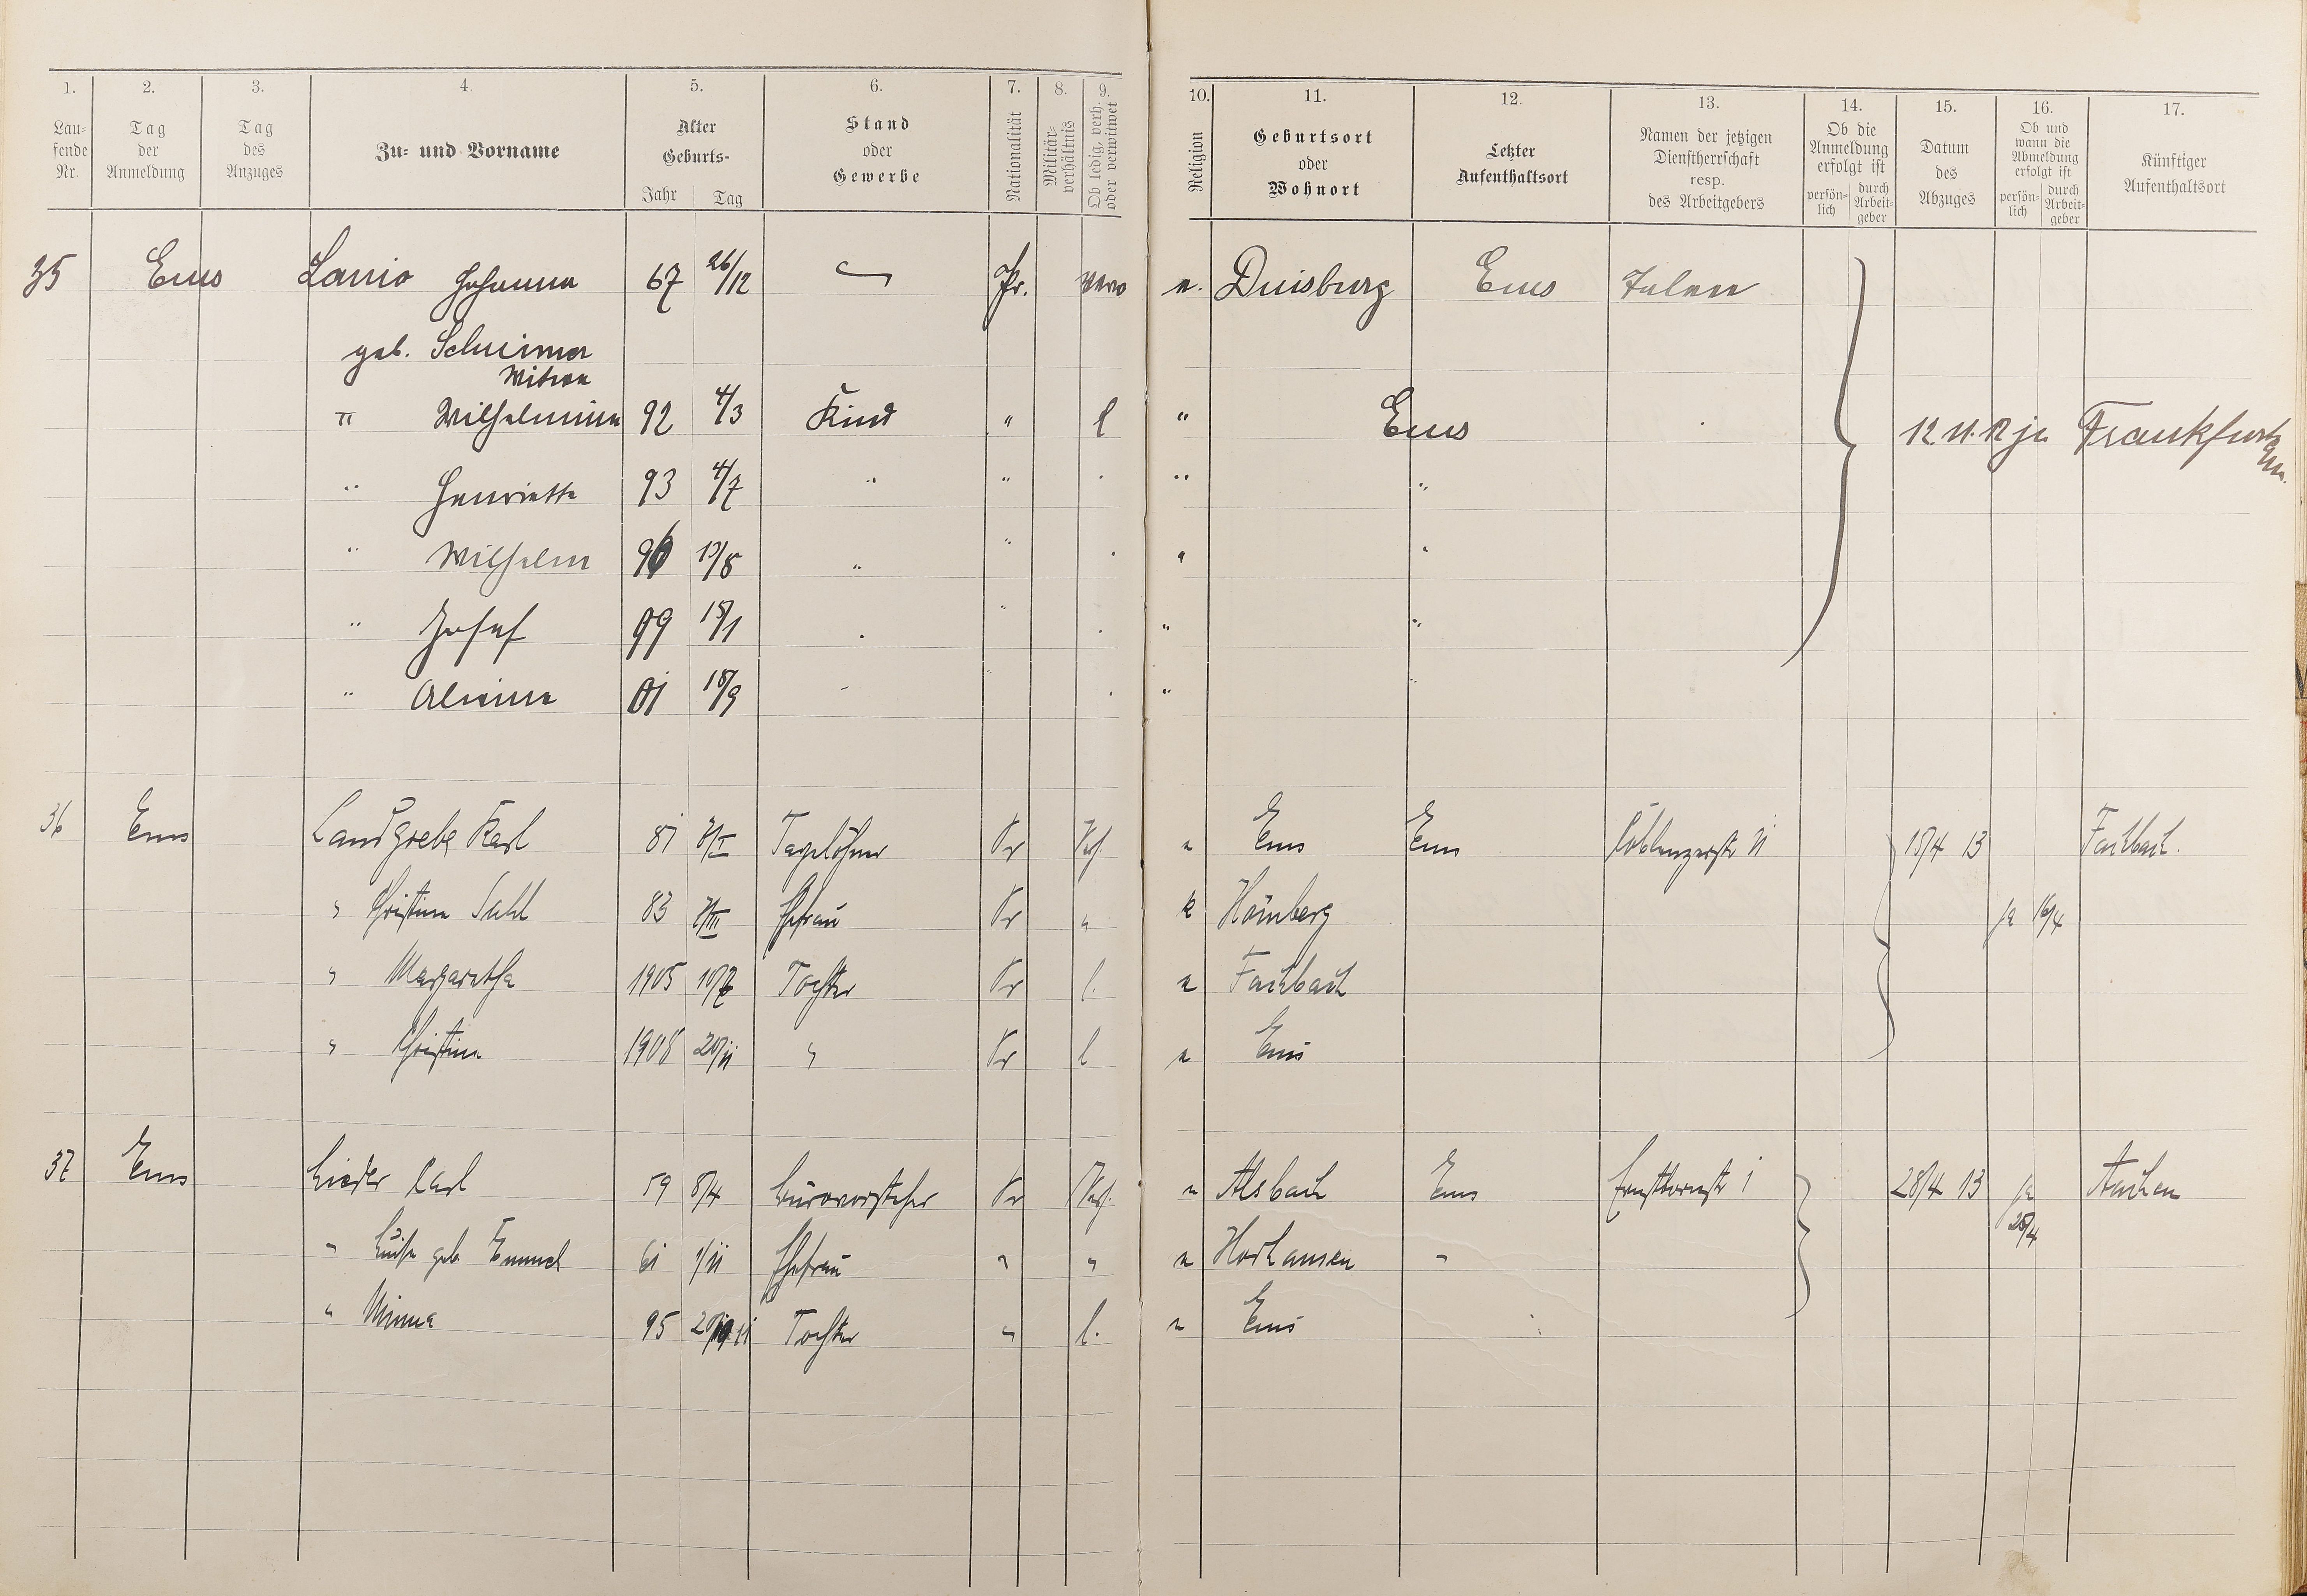 1. 2. 3. 4. 5. 6. 7. 8. 9. 10. 11. 12. 13. 14. 15. 16. 17.
Lau-
fende
Nr.
Tag
der
Anmeldung
Tag
des
Anzuges
Zu- und Vorname
Alter
Geburts-
Jahr Tag
Stand
oder
Gewerbe
Nationalität
Militär-
verhältnis
Ob ledig, verh.
oder verwitwet
Religion
Geburtsort
oder
Wohnort
Letzter
Aufenthaltsort
Namen der jetzigen
Dienstherrschaft
resp.
des Arbeitgebers
Ob die
Anmeldung
erfolgt ist
persön-
lich
durch
Arbeit-
geber
Datum
des
Abzuges
Ob und
wann die
Abmeldung
erfolgt ist
persön-
lich
durch
Arbeit-
geber
Künftiger
Aufenthaltsort
35 Ems Lanio Johanna 67 26/12 Pr. e. Duisburg Ems
geb.
Witwe
" Wilhelmine 92 4/3 Kind " l " Ems 12 11. 12 ja Frankfurt
" Henriette 93 4/7 " " " "
" Wilhelm 96 " " "
" Josef 99 18/1 " " "
" 01 18/9 " "
36 Ems Landgrebe Karl 81 Tagelöhner Pr Verh. e Ems Ems Coblenzerstr 11 15/4 13 Fachbach.
" Christine 83 Ehefrau Pr " k Hömberg ja 16/4
" Margaretha 1905 Tochter Pr l. e Fachbach
" Christine 1908 20/11 " Pr l e Ems
37 Ems Lieder Karl 59 8/4 Bürovorsteher Pr Verh. e Alsbach Ems Ernstbornstr 1 28/4 13 ja 28/4 Aachen
" Luise geb. Emmel 61 1/11 Ehefrau " " e Horhausen "
" Minna 95 Tochter " l. e Ems